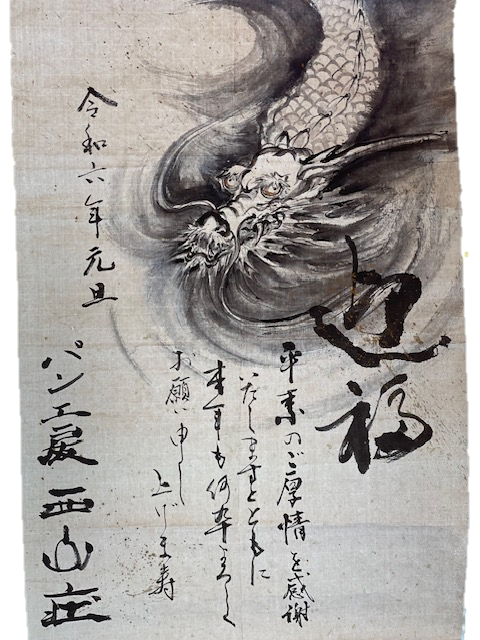 迎福
平素のご厚情を感謝
いたしますとともに
本年も何卒よろしく
お願い申し上げま寿
令和六年元旦
パン工房西山荘